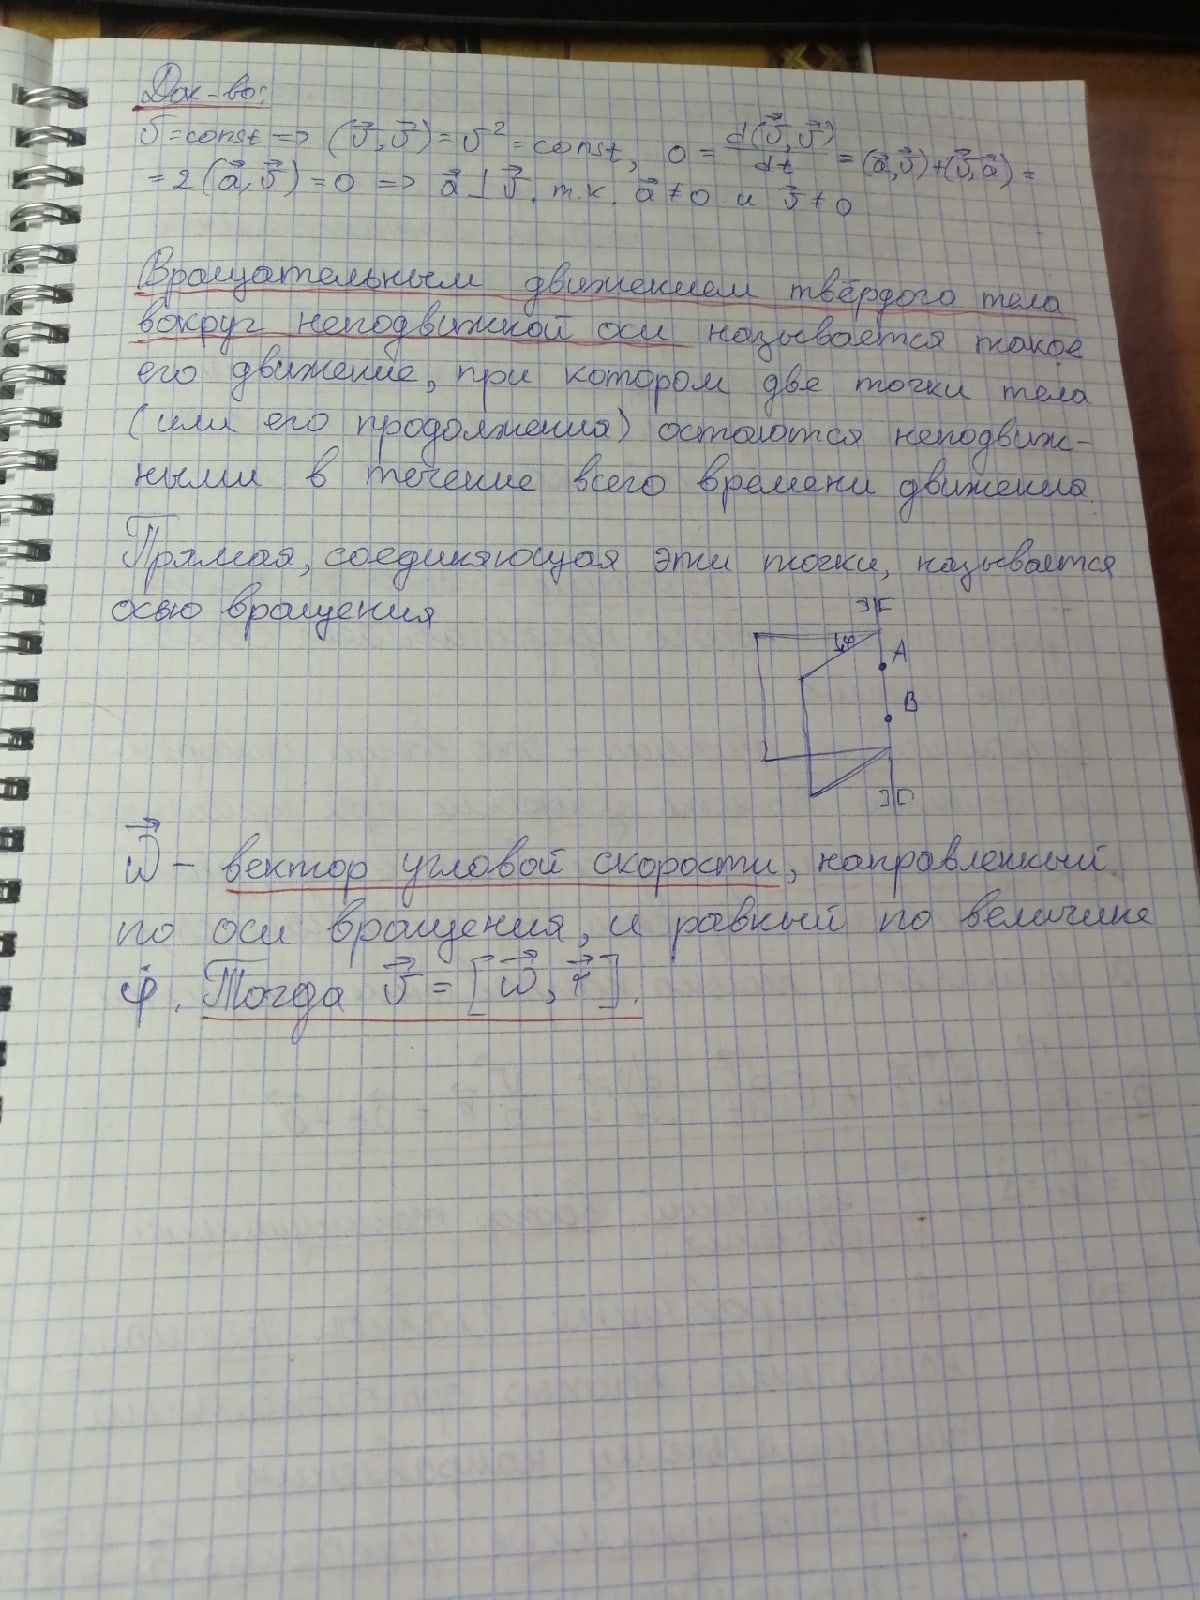 Док-во:
v = const => (v⃗, v⃗) = v² = const, 0 = d(v⃗, v⃗)/dt = (a⃗, v⃗) + (v⃗, a⃗) =
= 2(a⃗, v⃗) = 0 => a⃗ ⊥ v⃗, т.к. a⃗ ≠ 0 и v⃗ ≠ 0
Вращательным движением твёрдого тела
вокруг неподвижной оси называется такое
его движение, при котором две точки тела
(или его продолжения) остаются неподвиж-
ными в течение всего времени движения.
Прямая, соединяющая эти точки, называется
осью вращения
φ
A
B
w⃗ - вектор угловой скорости, направленный
по оси вращения, и равный по величине
φ̇. Тогда v⃗ = [w⃗, r⃗].